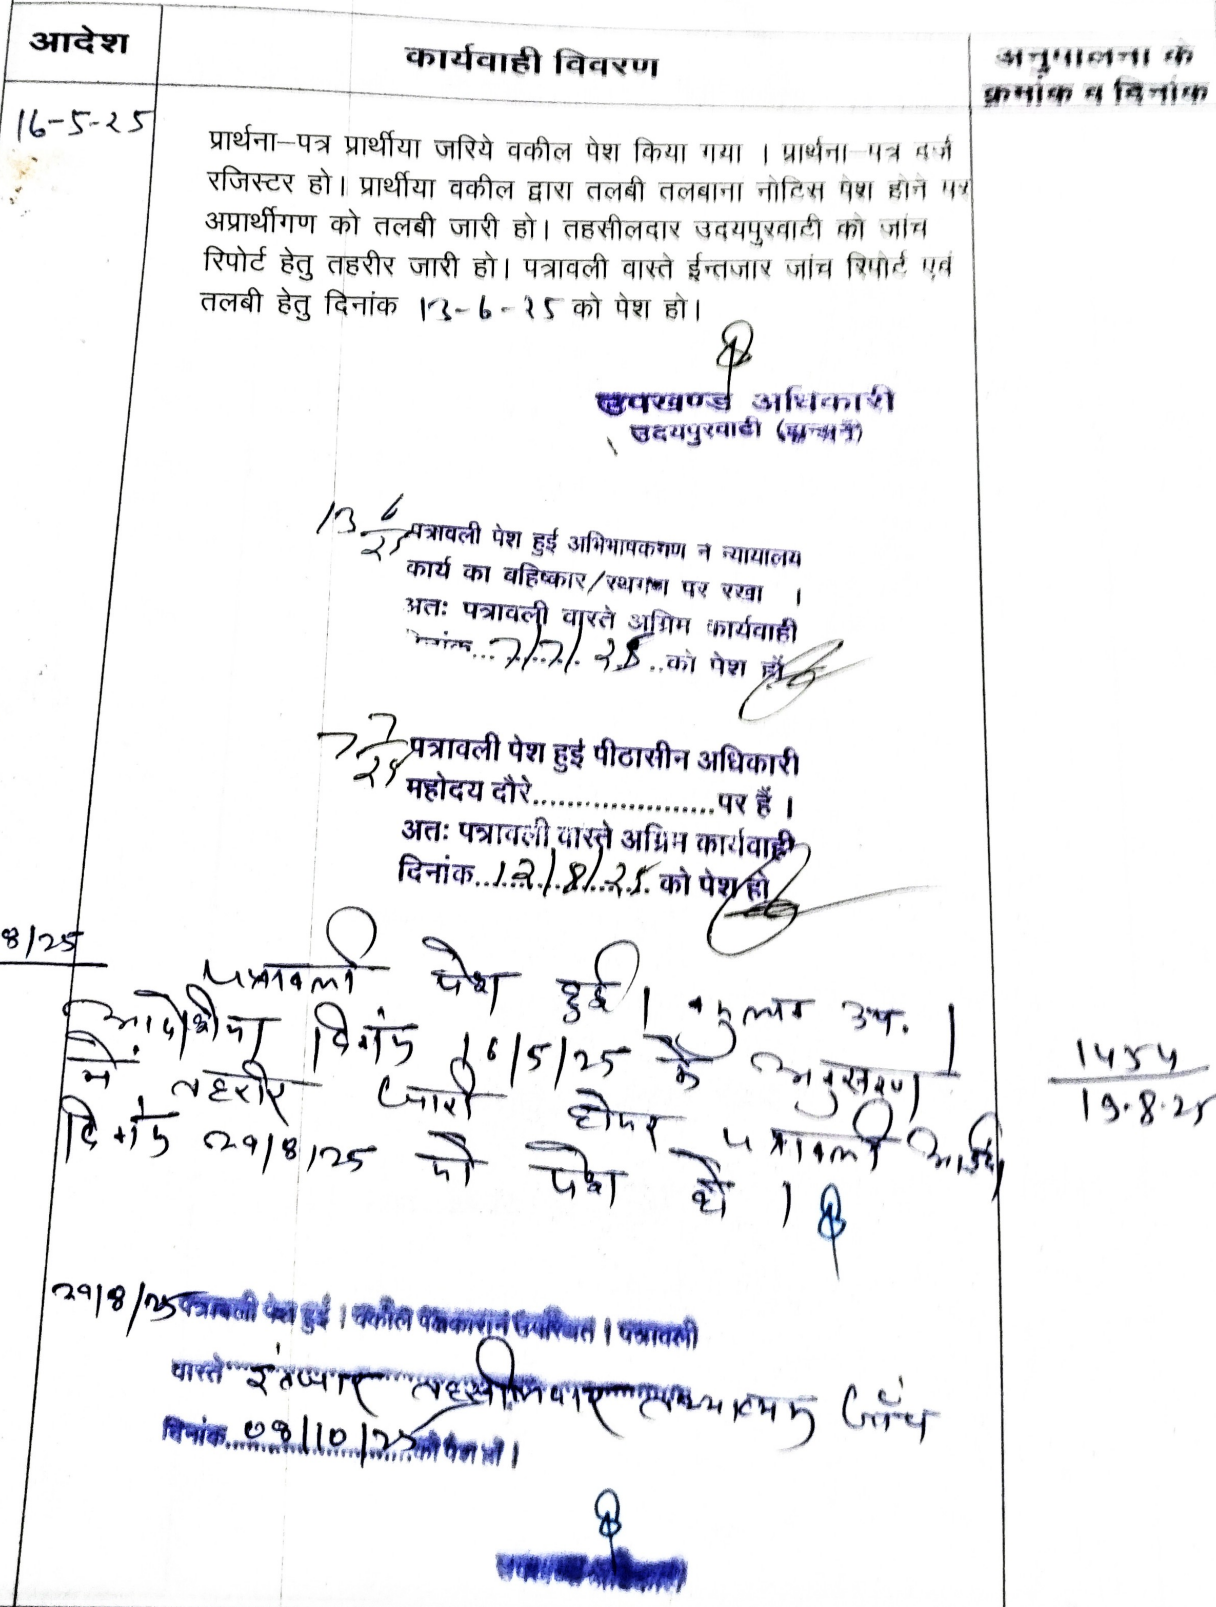 आदेश
कार्यवाही विवरण
अनुपालना के
क्रमांक व दिनांक
16-5-25
प्रार्थना-पत्र प्रार्थीया जरिये वकील पेश किया गया । प्रार्थना-पत्र दर्ज
रजिस्टर हो। प्रार्थीया वकील द्वारा तलबी तलबाना नोटिस पेश होने पर
अप्रार्थीगण को तलबी जारी हो। तहसीलदार उदयपुरवाटी को जांच
रिपोर्ट हेतु तहरीर जारी हो। पत्रावली वास्ते ईन्तजार जांच रिपोर्ट एवं
तलबी हेतु दिनांक 13-6-25 को पेश हो।
उपखण्ड अधिकारी
उदयपुरवाटी
13 6/25 पत्रावली पेश हुई अभिभाषकगण न न्यायालय
कार्य का बहिष्कार/स्थगन पर रखा ।
अतः पत्रावली वास्ते अग्रिम कार्यवाही
दिनांक...7/7/25..को पेश हो
7 7/25 पत्रावली पेश हुई पीठासीन अधिकारी
महोदय दौरे....................पर हैं ।
अतः पत्रावली वास्ते अग्रिम कार्यवाही
दिनांक...12/8/25. को पेश हो
8/25
पत्रावली पेश हुई। उप. |
आदेशिका दिनांक 16/5/25 के अनुसरण
में तहरीर जारी होकर पत्रावली
1454
19.8.25
दिनांक 29/8/25 को पेश हो ।
29/8/25 पत्रावली पेश हुई । वकील पक्षकारान उपस्थित । पत्रावली
वास्ते इंतजार तहसीलदार तथ्यात्मक जाँच
दिनांक 08/10/25 को पेश हो ।